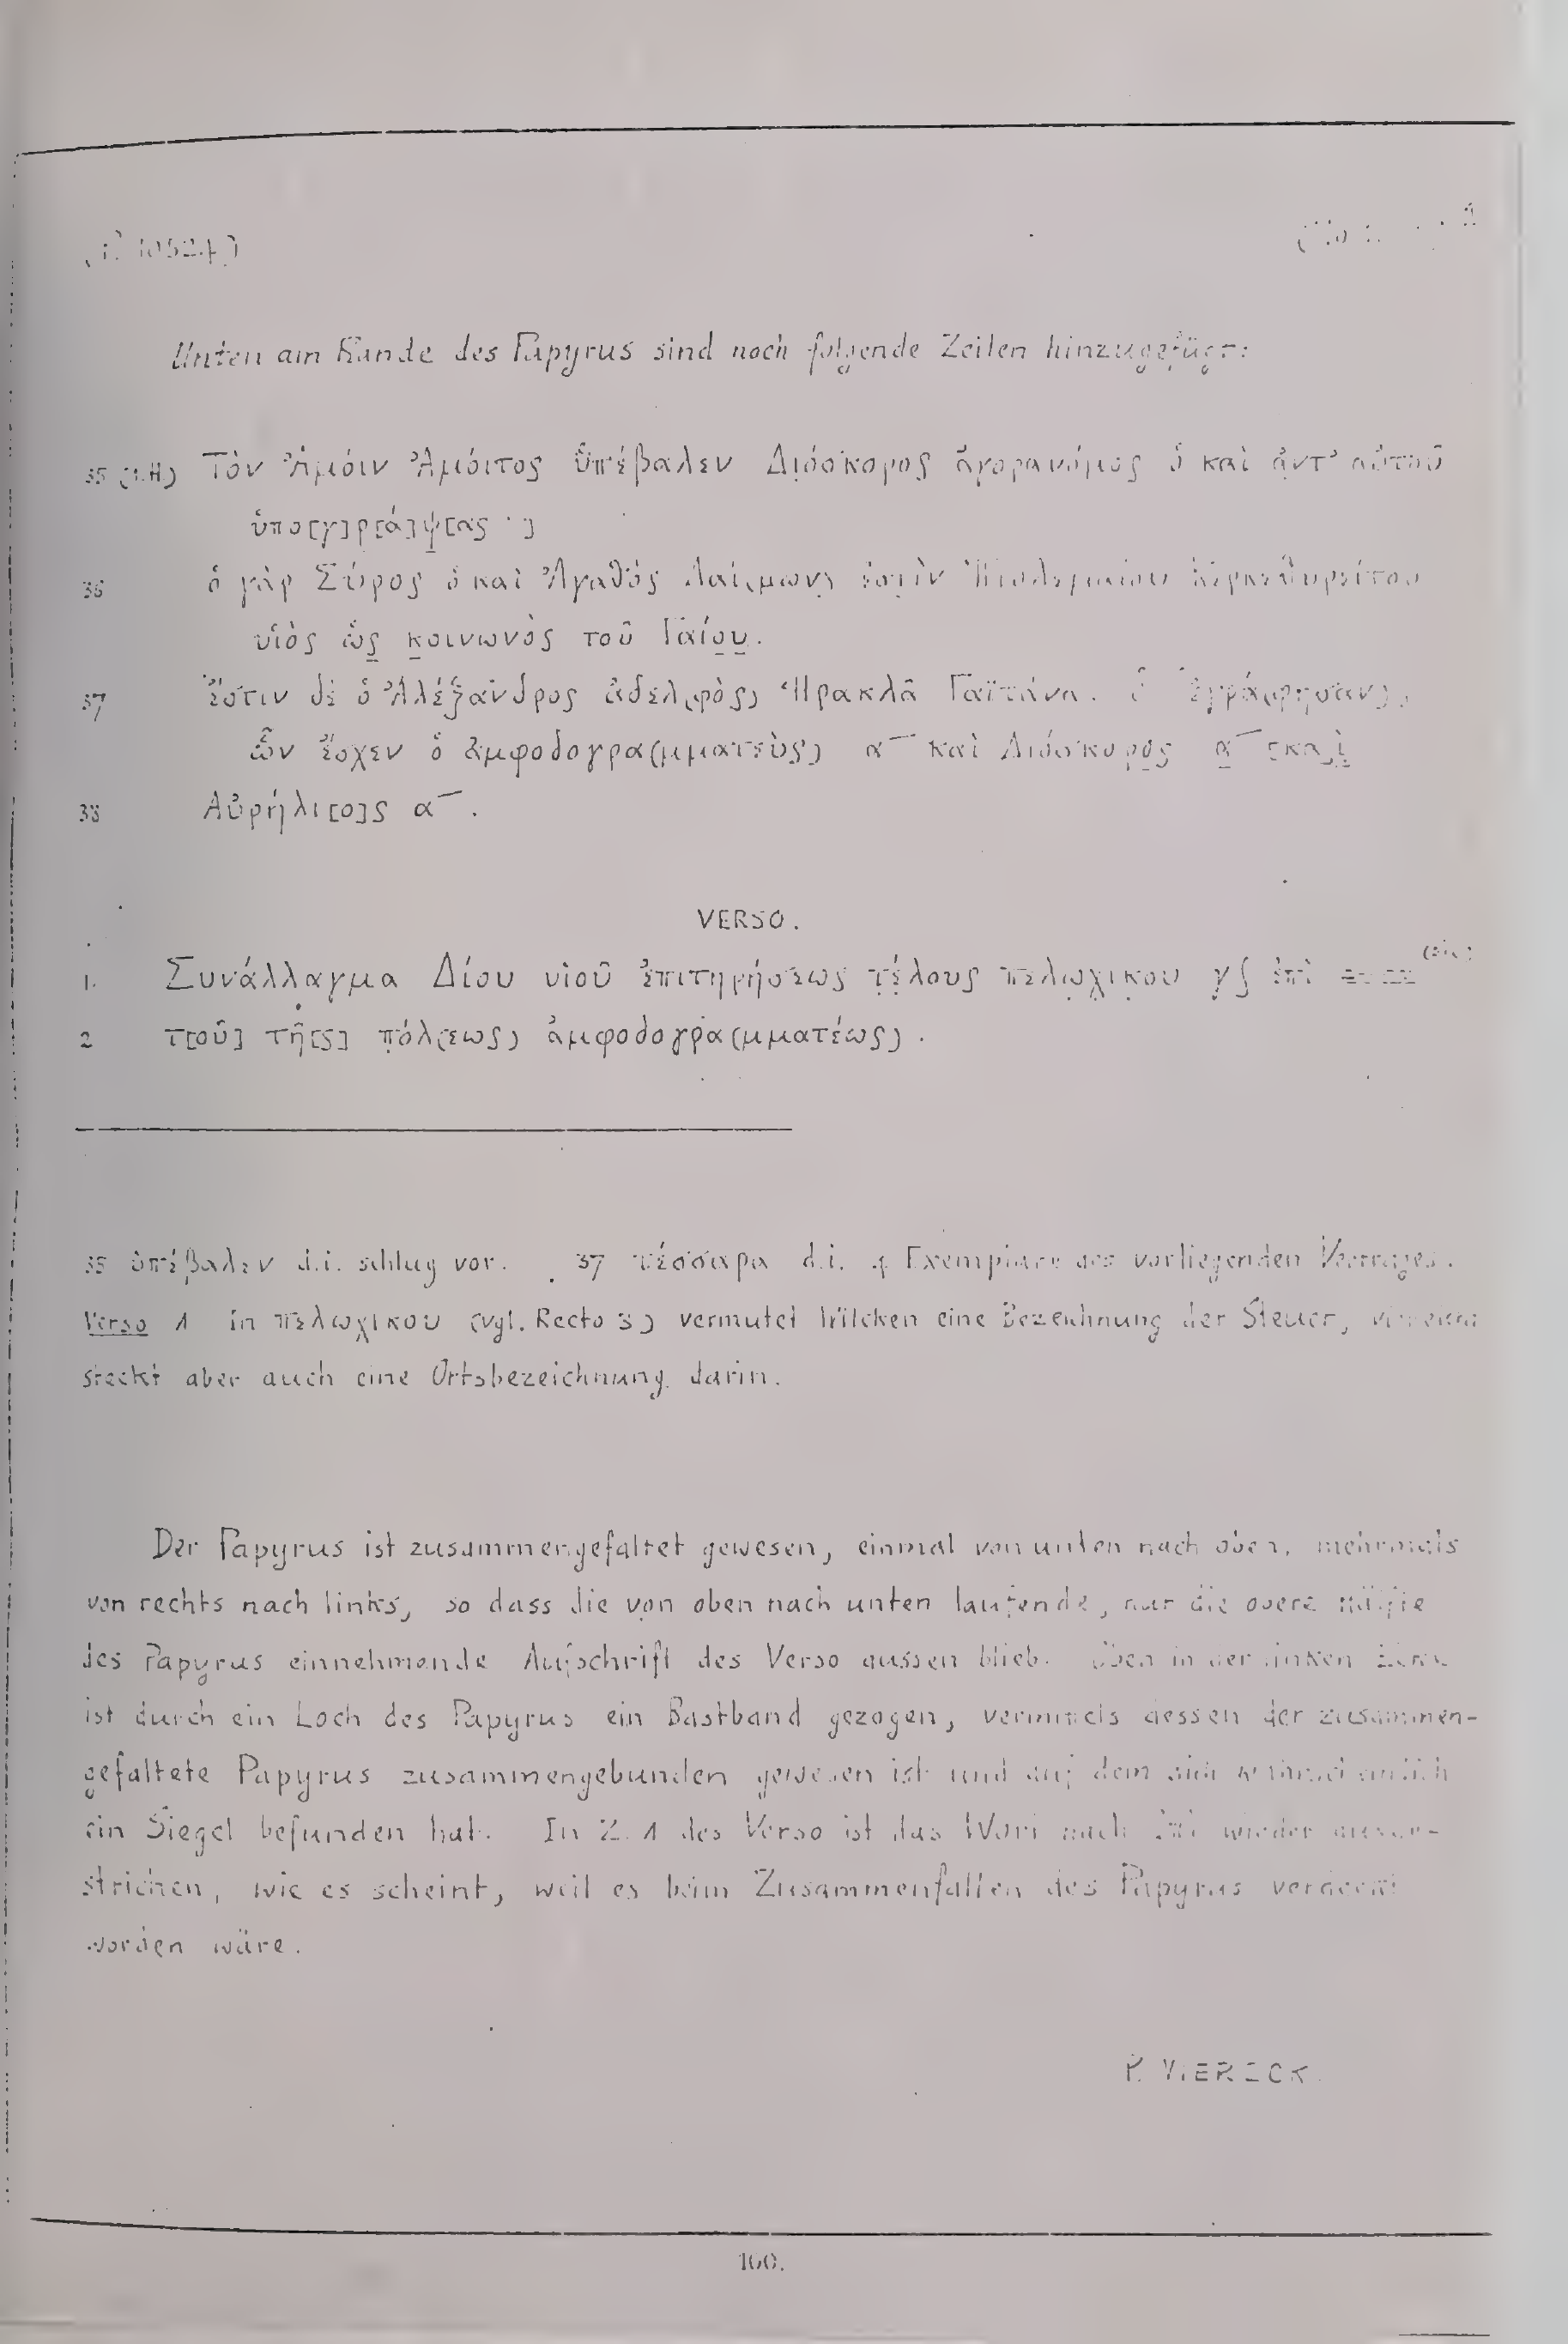 (P. 10524)
Unten am Rande des Papyrus sind noch folgende Zeilen hinzugefügt:
35 (1.H.) Τὸν Ἀμόιν Ἀμόιτος ὑπέβαλεν Διόσκορος ἀγορανόμος ὁ καὶ ἀντ' αὐτοῦ
ὑπο[γ]ρ[ά]ψ[ας·]
36 ὁ γὰρ Σύρος ὁ καὶ Ἀγαθὸς Δαί(μων) ἐστὶν Πτολεμαίου Κερκεθυρείτου
υἱὸς ὡς κοινωνὸς τοῦ Γαίου.
37 Ἔστιν δὲ ὁ Ἀλέξανδρος ἀδελ(φὸς) Ἡρακλᾶ Γαϊτάνα. δ ἐγράφησαν),
ὧν ἔσχεν ὁ ἀμφοδογρα(μματεὺς) α‾ καὶ Διόσκορος α‾ [κα]ὶ
38 Αὐρήλι[ο]ς α‾.
VERSO.
1. Συνάλλαγμα Δίου υἱοῦ ἐπιτηρήσεως τέλους πελωχικου γʃ ἐπὶ (sic)
2 τ[οῦ] τῆ[ς] πόλ(εως) ἀμφοδογρα(μματέως).
35 ὑπέβαλεν d.i. schlug vor. 37 τέσσαρα d.i. 4 Exemplare des vorliegenden Vertrages.
Verso 1 In πελωχικου (vgl. Recto 3) vermutet Wilcken eine Bezeichnung der Steuer, vielleicht
steckt aber auch eine Ortsbezeichnung darin.
Der Papyrus ist zusammengefaltet gewesen, einmal von unten nach oben, mehrmals
von rechts nach links, so dass die von oben nach unten laufende, nur die obere Hälfte
des Papyrus einnehmende Aufschrift des Verso aussen blieb. Oben in der linken Ecke
ist durch ein Loch des Papyrus ein Bastband gezogen, vermittels dessen der zusammen-
gefaltete Papyrus zusammengebunden gewesen ist und auf dem sich wahrscheinlich
ein Siegel befunden hat. In Z. 1 des Verso ist das Wort nach ἐπὶ wieder ausge-
strichen, wie es scheint, weil es beim Zusammenfalten des Papyrus verdeckt
worden wäre.
P. VIERECK.
160.